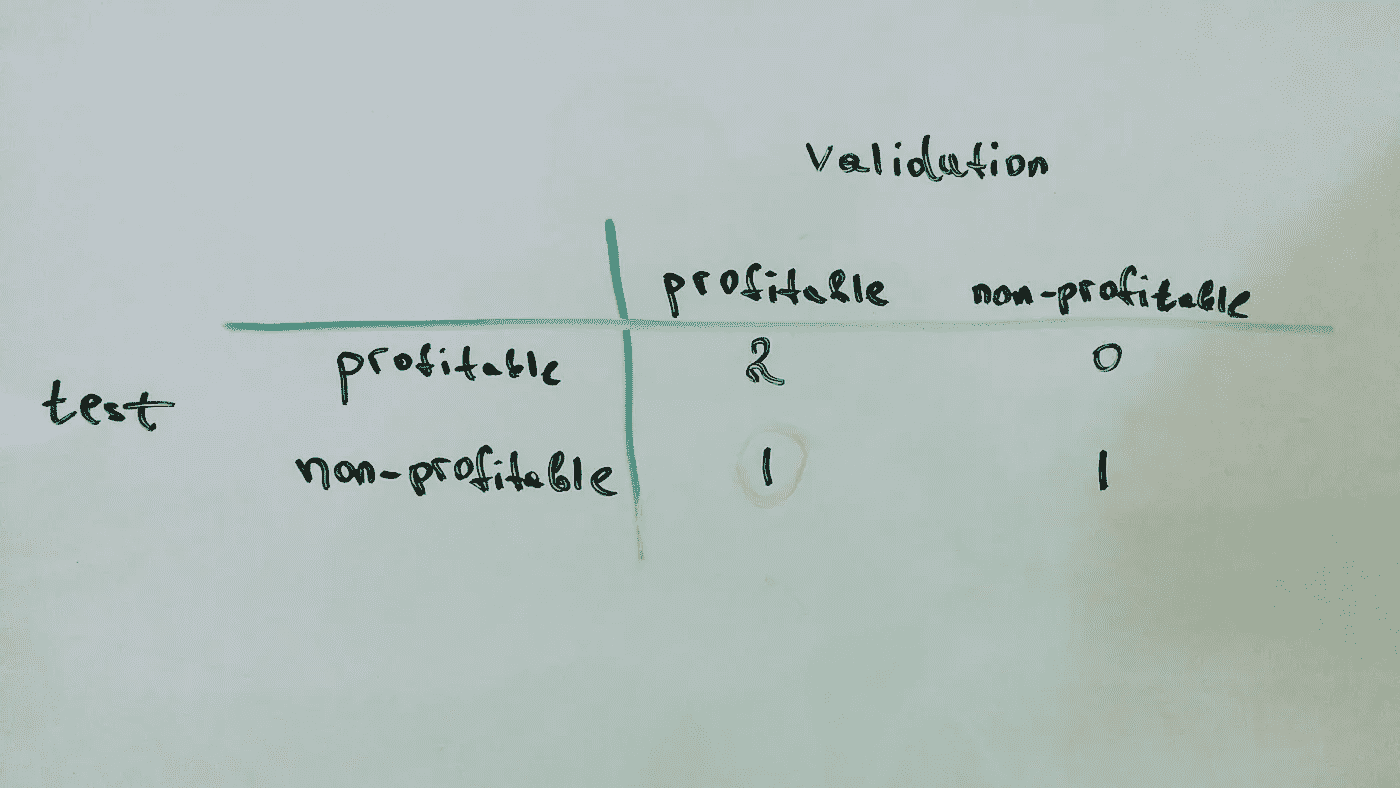 Validation
profitable non-profitable
profitable 2 0
test
non-profitable 1 1